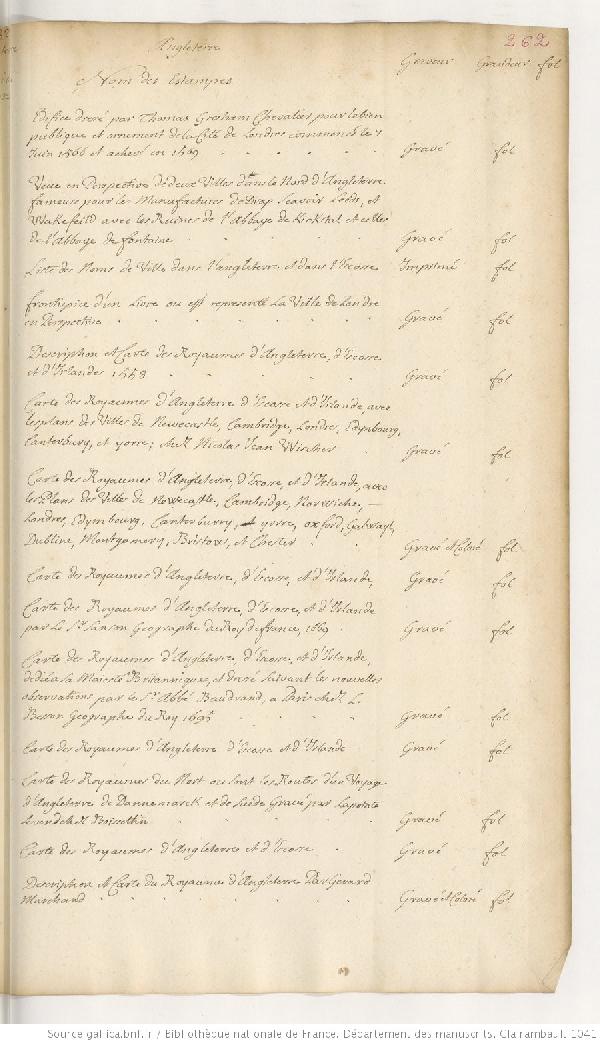 262
Angleterre
Nom des Estampes Graveur Grandeur fol
Edifice dressé par Thomas Gresham Chevalier pour le bien
publique et ornement de la Cité de Londres commencé le 7
Juin 1566 et achevé en 1569 Gravé fol
Veue en Perspective de deux Villes dans le Nord d'Angleterre
fameuse pour les Manufactures de Drap Scavoir Leeds, et
Wakefeild avec les Ruines de l'Abbaye de Kirkstal et celles
de l'Abbaye de fontaine Gravé fol
Liste des Noms de Ville dans l'angleterre et dans l'Ecosse Imprimé fol
frontispice d'un Livre ou est representé La Ville de Londre
en Perspective Gravé fol
Description et Carte des Royaumes d'Angleterre, d'Ecosse
et d'Irlandes 1558 Gravé fol
Carte des Royaumes d'Angleterre d'Ecosse et d'Irlande, avec
les plans des Villes de Newecastle, Cambridge, Londres, Edymbourg,
Canterbury, et yorre; Nicolas Jean Wischer Gravé fol
Carte des Royaumes d'Angleterre, d'Ecosse, et d'Irlande, avec
les Plans des Villes de Nowecastle, Cambridge, Norwiche,
Londres, Edymbourg, Canterburry, et yorre, oxford, Galwaye,
Dubline, Montgomery, Bristow, et Chester Gravé et Coloré fol
Carte des Royaumes d'Angleterre, d'Ecosse, et d'Irlande, Gravé fol
Carte des Royaumes d'Angleterre, d'Ecosse, et d'Irlande
par Le Sr. Sanson Geographe du Roy de france, 1669 Gravé fol
Carte des Royaumes d'Angleterre, d'Ecosse, et d'Irlande,
dediée a sa Majesté Britannique, et suivant les nouvelles
observations par le Sr. Abbé Baudrand, a Paris chez L.
Besson Geographe du Roy Gravé fol
Carte des Royaumes d'Angleterre d'Ecosse et d'Irlande Gravé fol
Carte des Royaumes du Nort ou sont les Routes d'un Voyage
d'Angleterre de Dannemarck et de Suede Gravé par
Boissevin Gravé fol
Carte des Royaumes d'Angleterre et d'Ecosse Gravé fol
Description et Carte du Royaume d'Angleterre Par Gerard
Marchand Gravé et Coloré fol
Source gallica.bnf.fr / Bibliothèque nationale de France. Département des manuscrits. Clairambault 1041